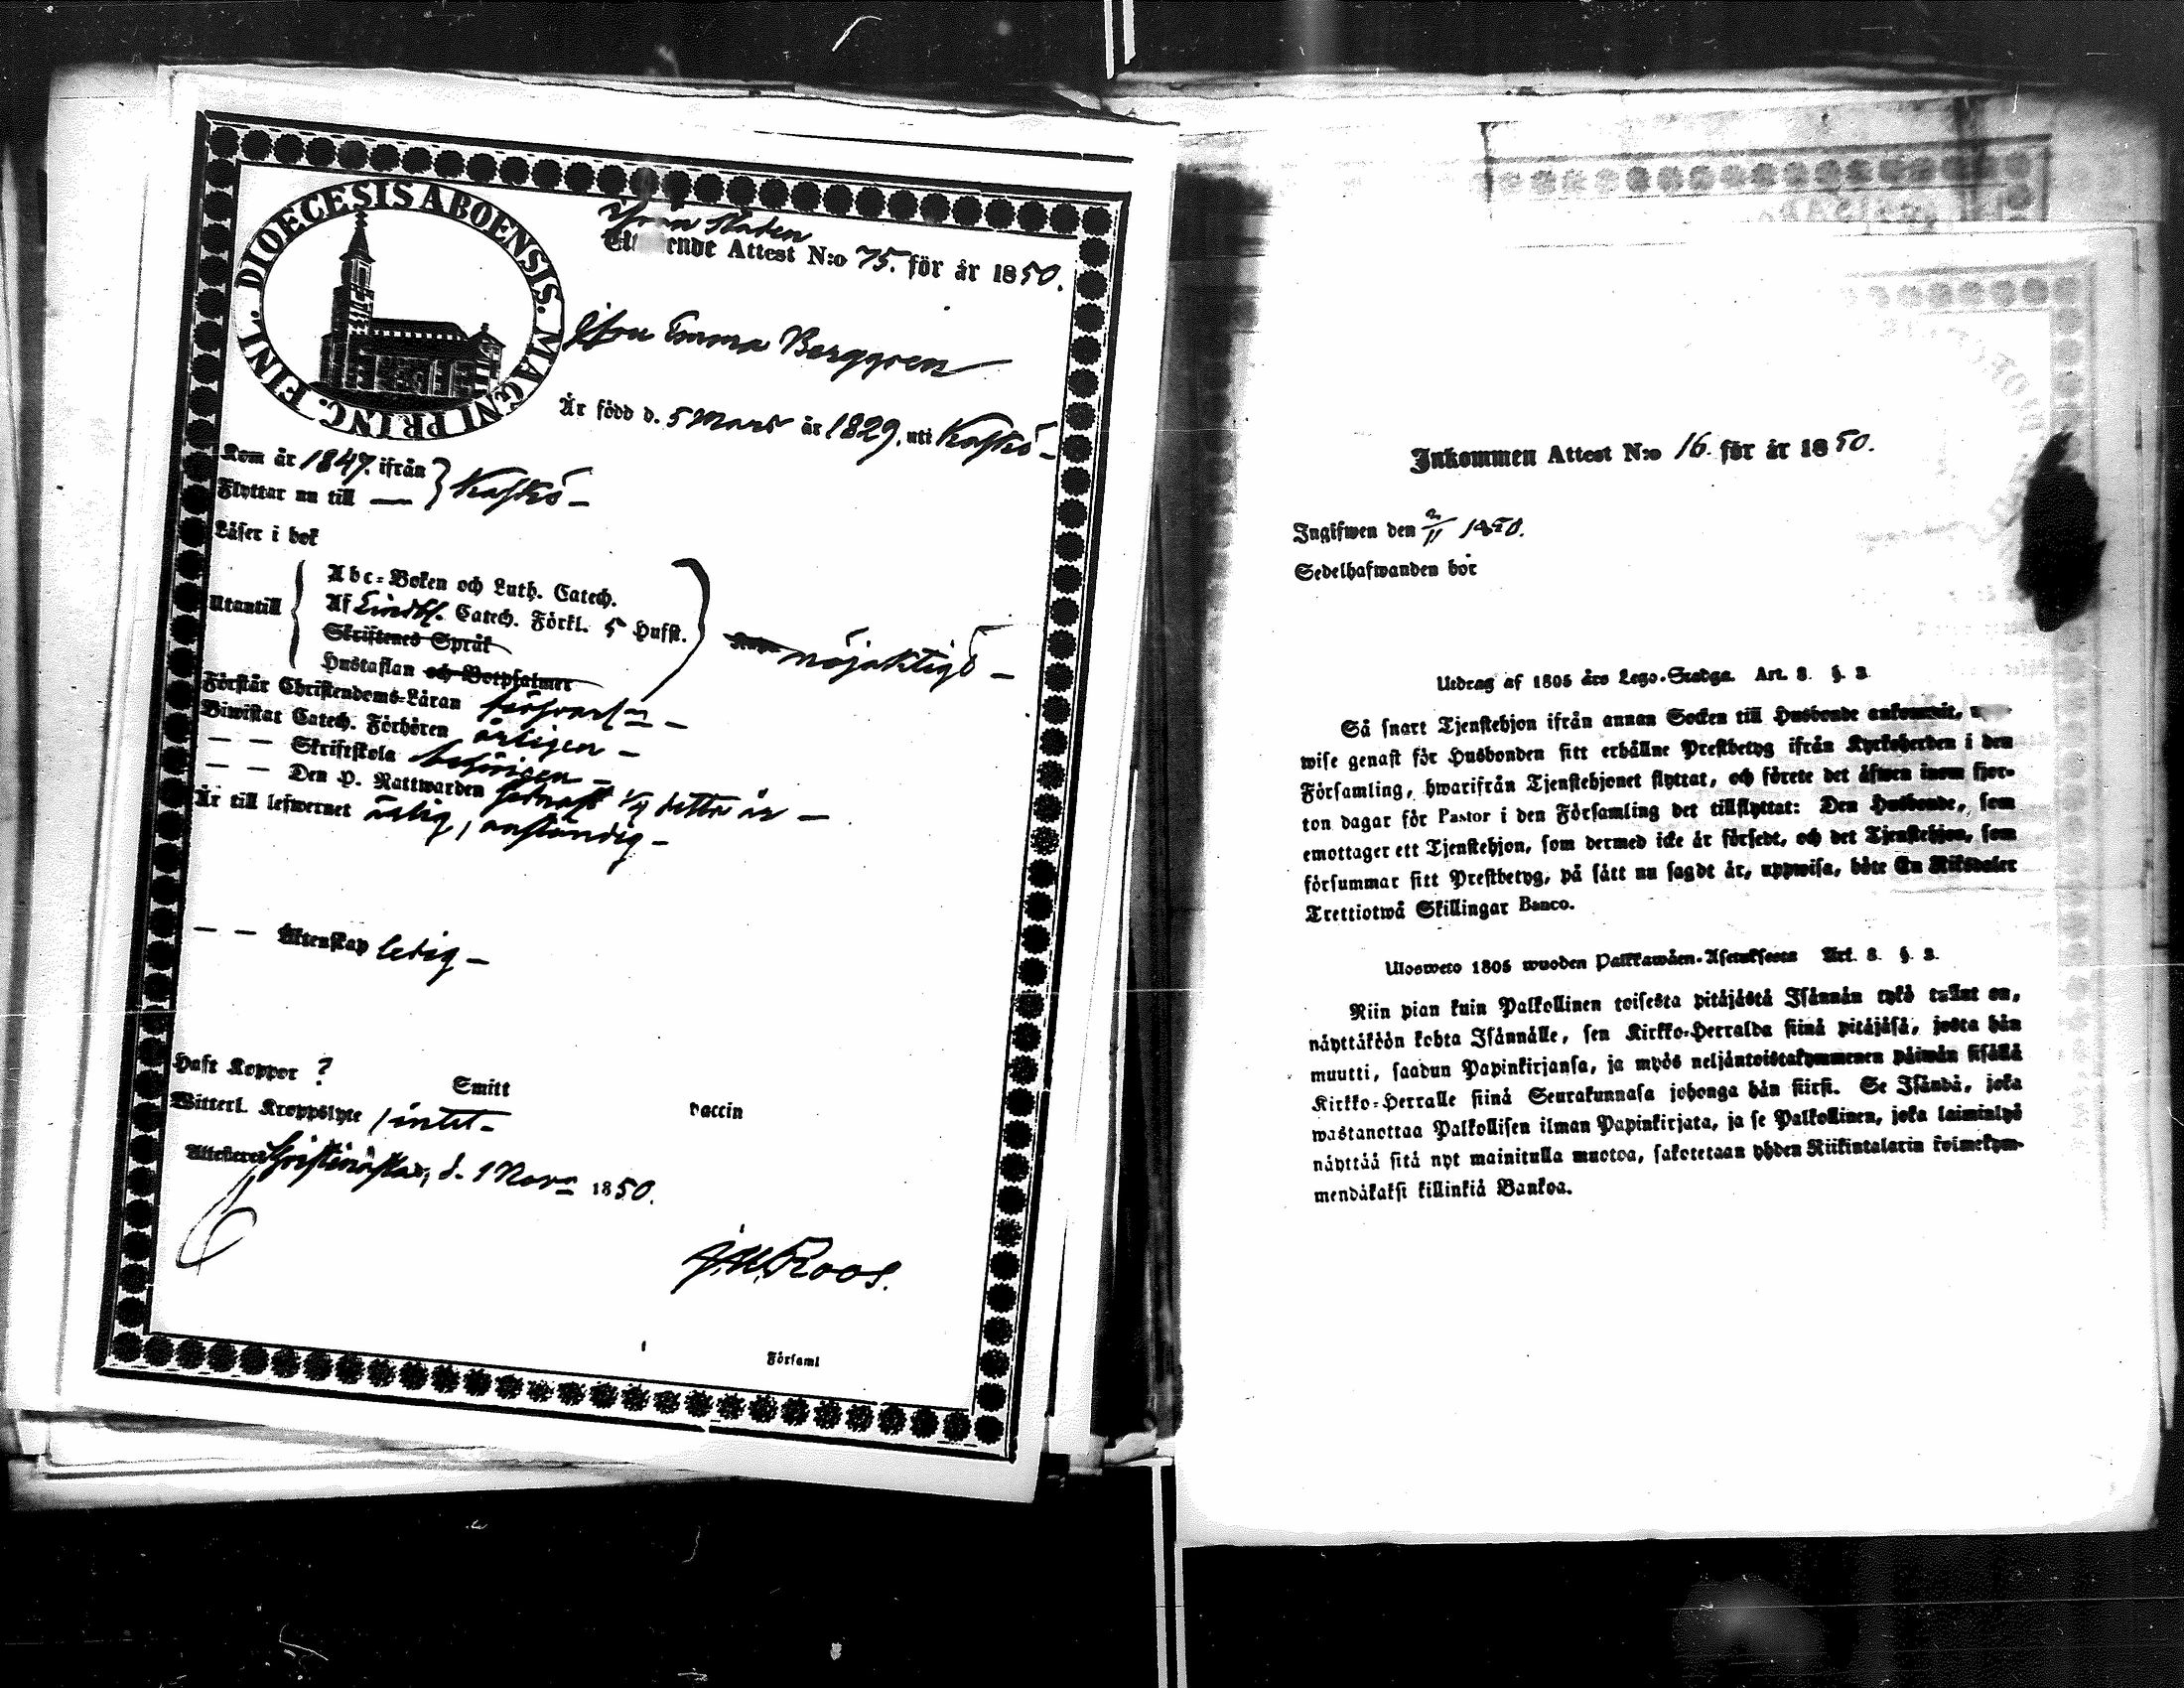 DIOECESIS ABOENSIS. MAGNI PRINC. FINL.
Från Staden
Utgående Attest N:o 75. för år 1850.
Emma Berggren
Är född d. 5 Mars år 1829, uti Kaskö –
Kom år 1847. ifrån } Kaskö –
Flyttar nu till —
Läser i bok
Utantill { Abc-Boken och Luth. Catech.
Af Lindbl. Catech. Förkl. 5 Hufst.
Skriftenes Språk
Hustaflan och Botpsalmer
} nöjaktigt –
Förstår Christendoms-Läran försvarl. –
Biwistat Catech. Förhören årligen –
— — Skriftskola behörigen –
— — Den H. Nattwarden detta år –
Är till lefwernet ärlig, anständig –
— — Äktenskap ledig –
Haft Koppor ? Smitt Vaccin
Witterl. Kroppslyte intet –
Attesteras Christinestad, d. 1 Nov. 1850.
J. M. Roos.
Församl
Inkommen Attest N:o 16. för år 1850.
Ingifwen den 2/11 1850.
Sedelhafwanden bor
Utdrag af 1805 års Lego-Stadga. Art. 3. §. 3.
Så snart Tjenstehjon ifrån annan Socken till Husbonde ankommit,
wise genast för Husbonden sitt erhållne Prestbetyg ifrån Kyrkoherden i den
Församling, hwarifrån Tjenstehjonet flyttat, och förete det äfwen inom fjor-
ton dagar för Pastor i den Församling det tillflyttat: Den Husbonde, som
emottager ett Tjenstehjon, som dermed icke är försedt, och det Tjenstehjon, som
försummar sitt Prestbetyg, på sätt nu sagdt är, uppwisa, böte En Riksdaler
Trettiotwå Skillingar Banco.
Ulosweto 1805 wuoden Palkkawäen-Asetuksesta Art. 3. §. 3.
Niin pian kuin Palkollinen toisesta pitäjästä Isännän tykö tullut on,
näyttäköön kohta Isännälle, sen Kirkko-Herralda siinä pitäjäsä, josta hän
muutti, saadun Papinkirjansa, ja myös neljäntoistakymmenen päiwän sisällä
Kirkko-Herralle siinä Seurakunnasa johonga hän siirsi. Se Isändä, joka
wastanottaa Palkollisen ilman Papinkirjata, ja se Palkollinen, joka laiminlyö
näyttää sitä nyt mainitulla muotoa, sakotetaan yhden Riikintalarin kolmekym-
mendäkaksi killinkiä Bankoa.